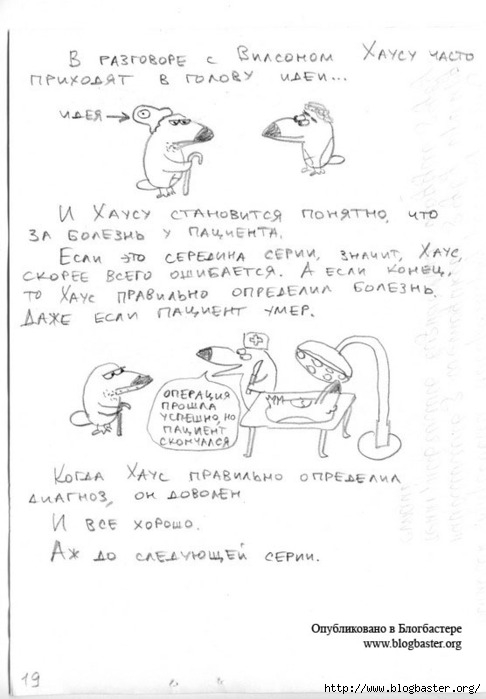 В РАЗГОВОРЕ С ВИЛСОНОМ ХАУСУ ЧАСТО
ПРИХОДЯТ В ГОЛОВУ ИДЕИ...
ИДЕЯ
И ХАУСУ СТАНОВИТСЯ ПОНЯТНО, ЧТО
ЗА БОЛЕЗНЬ У ПАЦИЕНТА.
ЕСЛИ ЭТО СЕРЕДИНА СЕРИИ, ЗНАЧИТ, ХАУС,
СКОРЕЕ ВСЕГО ОШИБАЕТСЯ. А ЕСЛИ КОНЕЦ,
ТО ХАУС ПРАВИЛЬНО ОПРЕДЕЛИЛ БОЛЕЗНЬ.
ДАЖЕ ЕСЛИ ПАЦИЕНТ УМЕР.
ОПЕРАЦИЯ
ПРОШЛА
УСПЕШНО, НО
ПАЦИЕНТ
СКОНЧАЛСЯ
КОГДА ХАУС ПРАВИЛЬНО ОПРЕДЕЛИЛ
ДИАГНОЗ, ОН ДОВОЛЕН.
И ВСЕ ХОРОШО.
АЖ ДО СЛЕДУЮЩЕЙ СЕРИИ.
Опубликовано в Блогбастере
www.blogbaster.org
19
http://www.blogbaster.org/